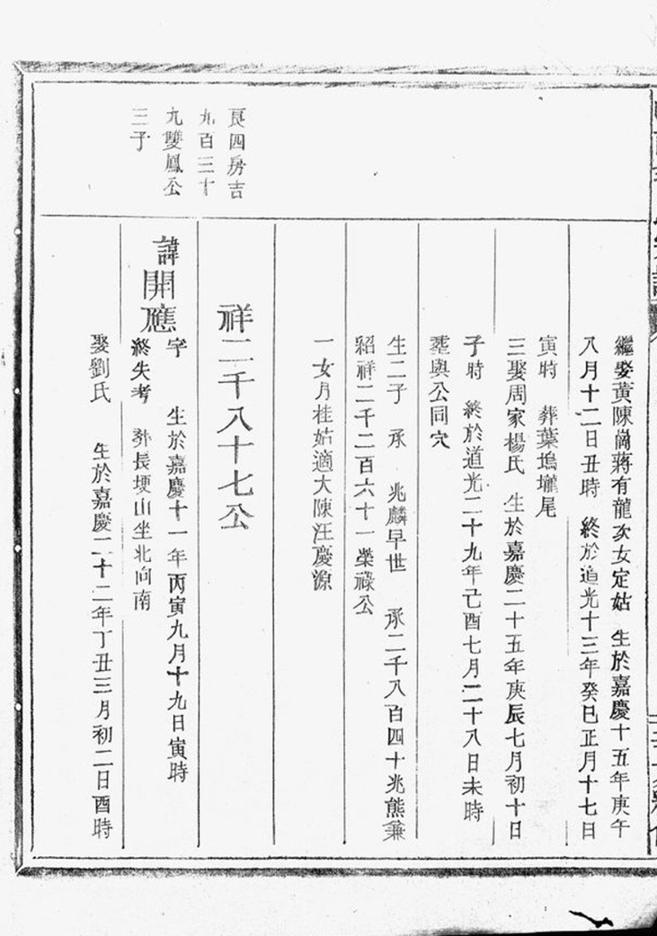 繼娶黃陳崗蔣有龍次女定姑 生於嘉慶十五年庚午
八月十二日丑時 終於道光十三年癸巳正月十七日
寅時 葬葉塢壠尾
三娶周家楊氏 生於嘉慶二十五年庚辰七月初十日
子時 終於道光二十九年己酉七月二十八日未時
塟與公同穴
生二子 承 兆麟早世 承二千八百四十兆熊兼
紹祥二千二百六十一榮祿公
一女月桂姑適大陳汪慶源
祥二千八十七公
良四房吉
九百三十
九雙鳳公
三子
諱開應
字 生於嘉慶十一年丙寅九月十九日寅時
終失考 葬長埂山坐北向南
娶劉氏 生於嘉慶二十二年丁丑三月初二日酉時